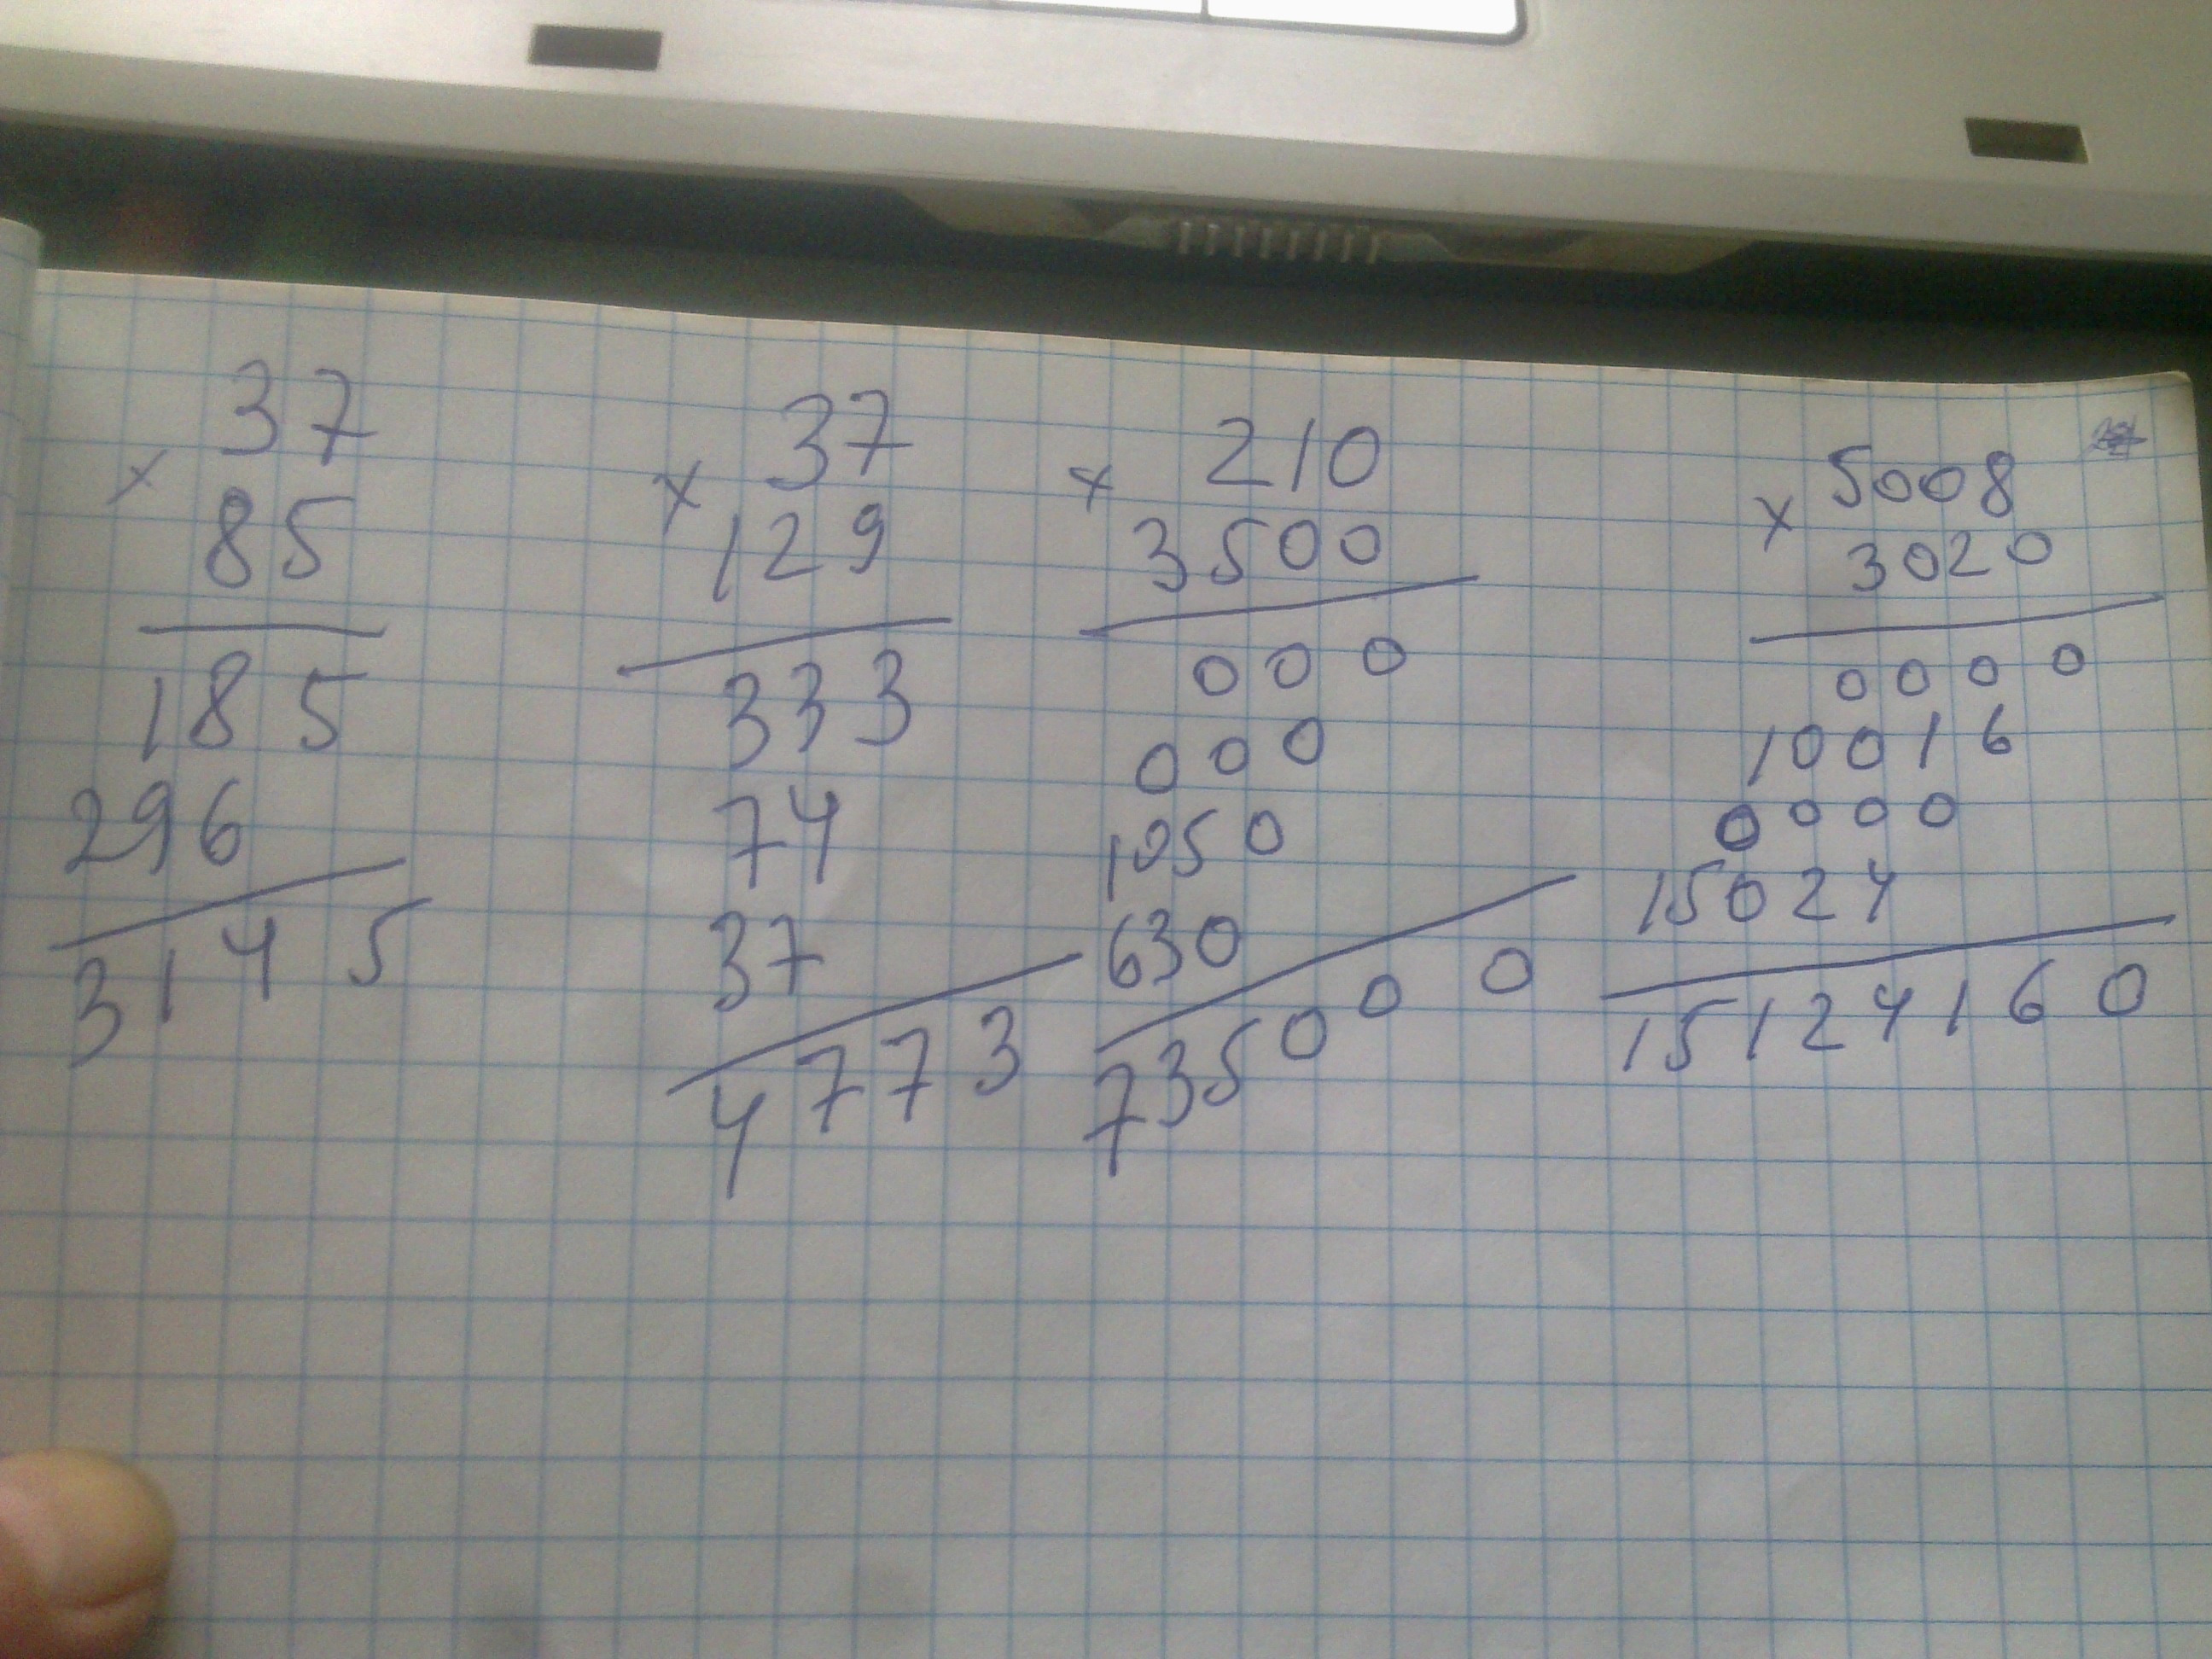 37
× 85
185
296
3145
37
× 129
333
74
37
4773
210
× 3500
000
000
1050
630
735000
5008
× 3020
0000
10016
0000
15024
15124160